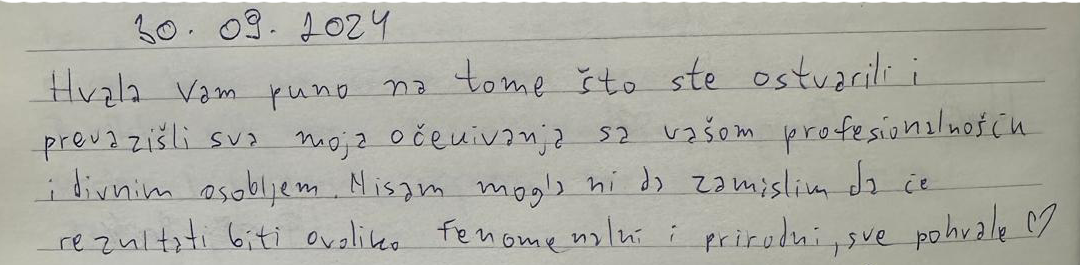 30. 09. 2024
Hvala Vam puno na tome što ste ostvarili i
prevazišli sva moja očekivanja sa vašom profesionalnošću
i divnim osobljem. Nisam mogla ni da zamislim da će
rezultati biti ovoliko fenomenalni i prirodni, sve pohvale ♡